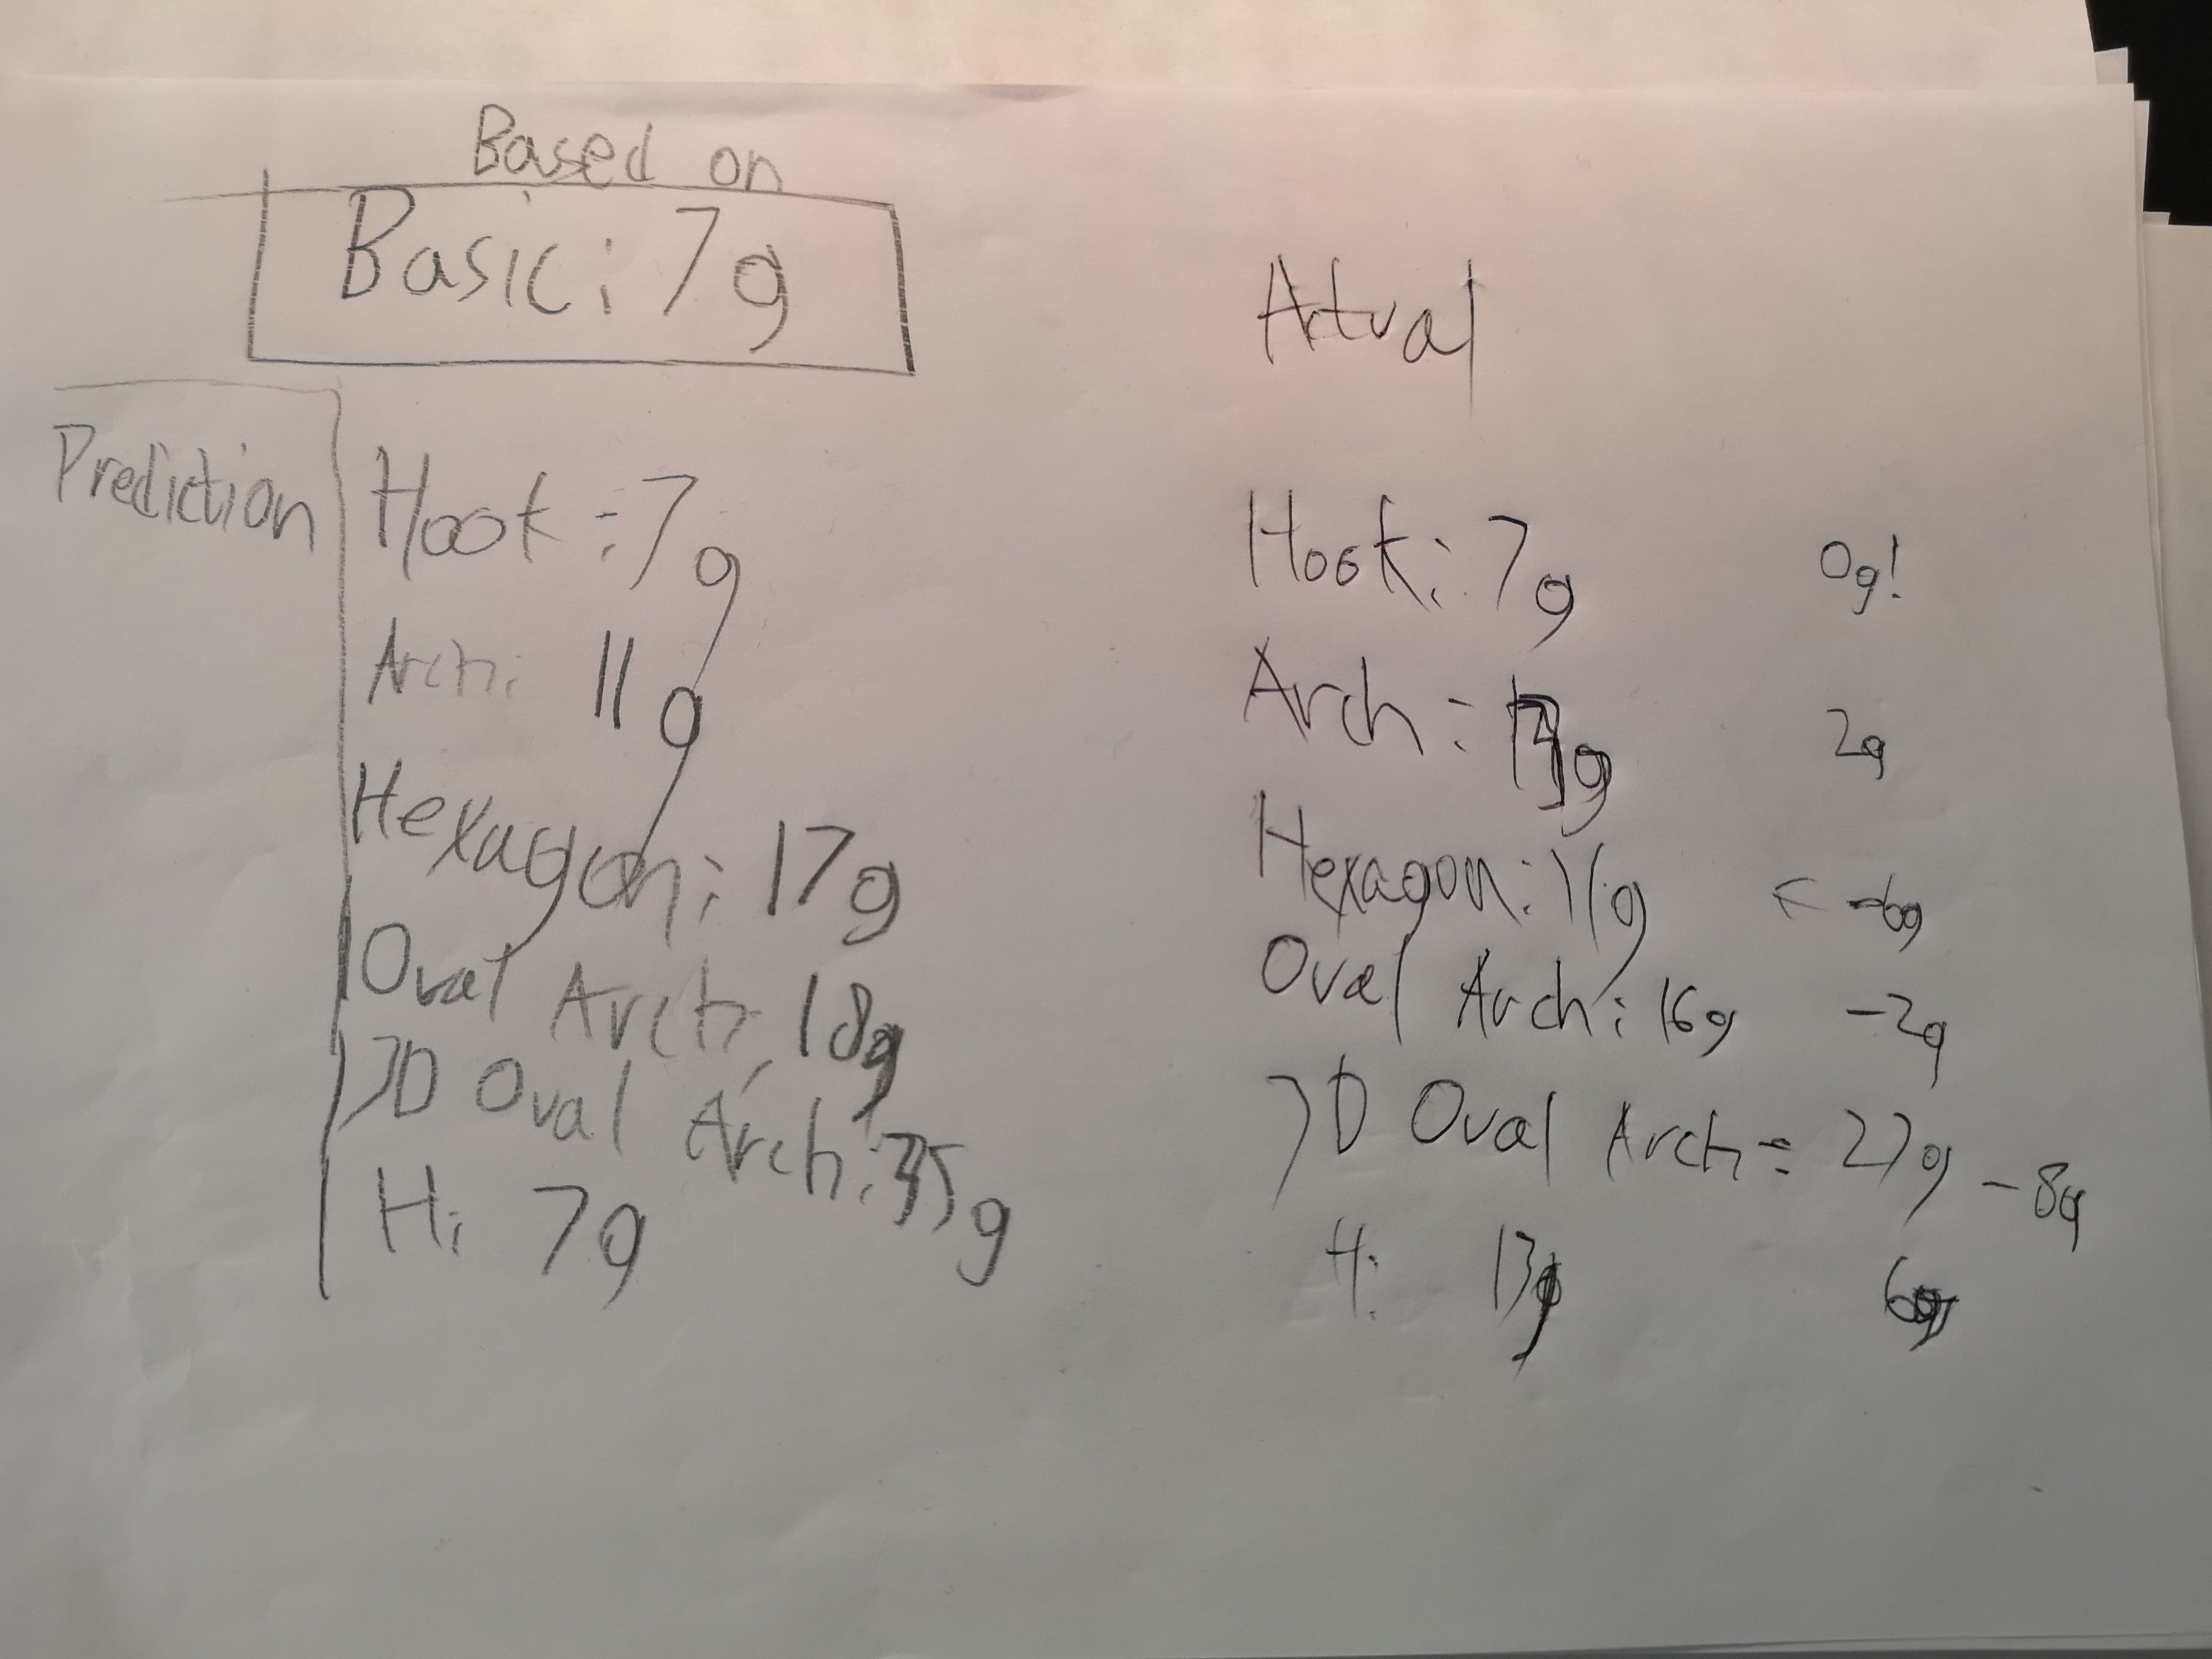 Based on
Basic: 7g
Prediction
Hook: 7g
Arch: 11g
Hexagon: 17g
Oval Arch: 18g
3D Oval Arch: 35g
H: 7g
Actual
Hook: 7g 0g!
Arch: 2g
Hexagon: 11g -6g
Oval Arch: 16g -2g
3D Oval Arch: 27g -8g
H: 13g 6g